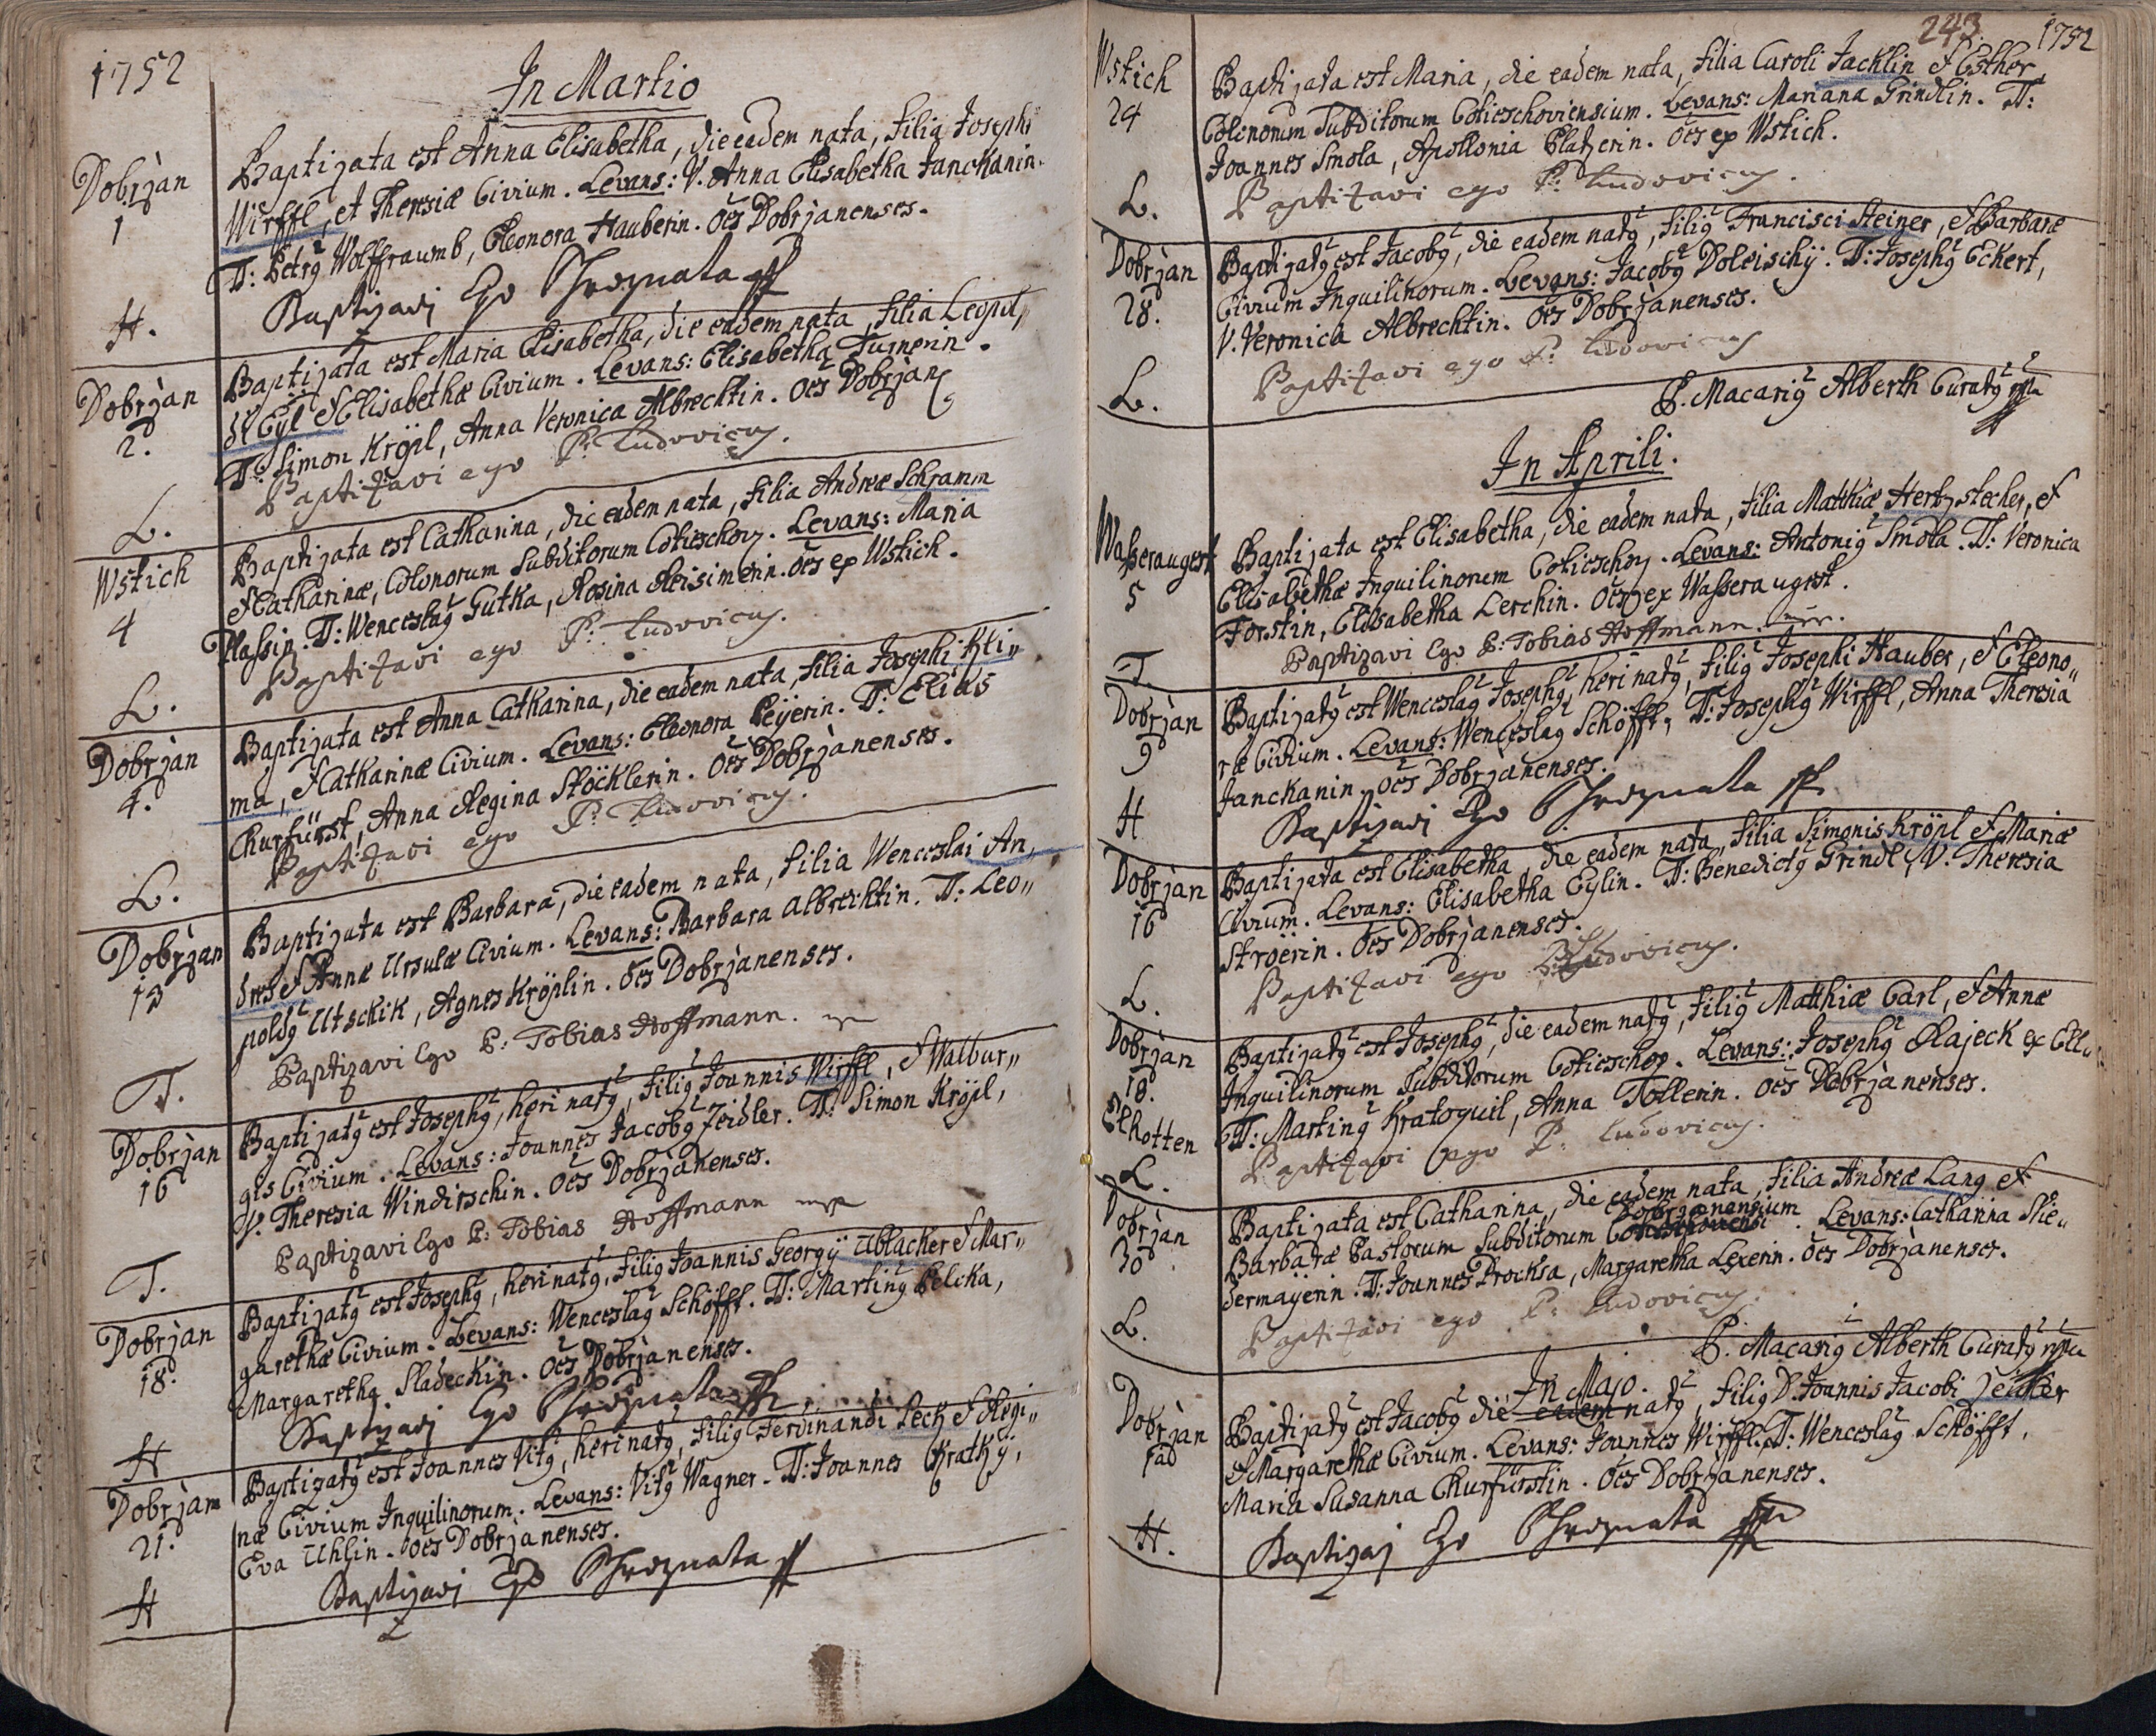 1752
In Martio
Dobrzan
1
H.
Baptizata est Anna Elisabetha, die eadem nata, filia Josephi
Wirffl, et Theresiæ Civium. Levans: V. Anna Elisabetha Janckanin.
T: Petrꝰ Wolffraumb, Eleonora Hauberin. Oēs Dobrzanenses.
Baptizavi Ego Chroznata
Dobrzan
2.
L.
Baptizata est Maria Elisabetha, die eadem nata, filia Leopol„
di Eÿl & Elisabethæ Civium. Levans: Elisabetha Turnerin.
T: Simon Kröpl, Anna Veronica Albrechtin. Oēs Dobrzan
Baptizavi ego P: Ludovicus.
Wstich
4
L.
Baptizata est Catharina, die eadem nata, filia Andreæ Schramm
& Catharinæ, Colonorum Subditorum Cotieschov. Levans: Maria
Plassin. T: Wenceslaꝰ Gutka, Rosina Reisimerin. Oēs ex Wstich.
Baptizavi ego P: Ludovicus.
Dobrzan
4.
L.
Baptizata est Anna Catharina, die eadem nata, filia Josephi Kli„
ma, & Catharinæ Civium. Levans: Eleonora Peÿerin. T: Elias
Churfürst, Anna Regina Stöcklerin. Oēs Dobrzanenses.
Baptizavi ego P: Ludovicus.
Dobrzan
13
T.
Baptizata est Barbara, die eadem nata, filia Wenceslai An„
dres & Annæ Ursulæ Civium. Levans: Barbara Albrechtin. T: Leo„
poldꝰ Utschik, Agnes Kröplin. Oēs Dobrzanenses.
Baptizavi Ego P: Tobias Hoffmann. mp
Dobrzan
16
T.
Baptizatꝰ est Josephꝰ, heri natꝰ, filiꝰ Joannis Wirffl, & Walbur„
gis Civium. Levans: Joannes Jacobꝰ Zeidler. T: Simon Kröpl,
V. Theresia Windirschin. Oēs Dobrzanenses.
Baptizavi Ego P: Tobias Hoffmann mp
Dobrzan
18.
H
Baptizatꝰ est Josephꝰ, heri natꝰ, filiꝰ Joannis Georgÿ Ublacker & Mar„
garethæ Civium. Levans: Wenceslaꝰ Schöffl. T: Martinꝰ Pelcka,
Margaretha Sladeckin. Oēs Dobrzanenses.
Baptizavi Ego Chroznata
Dobrzam
21.
H
Baptizatꝰ est Joannes Vitꝰ, heri natꝰ, filiꝰ Ferdinandi Lech & Regi„
næ Civium Inquilinorum. Levans: Vitꝰ Wagner. T: Joannes Kratkÿ,
Eva Uhlin. Oēs Dobrzanenses.
Baptizavi Ego Chroznata
243
1752
Wstich
24
L.
Baptizata est Maria, die eadem nata, filia Caroli Jacklin & Esther
Colonorum Subditorum Cotieschoviensium. Levans: Mariana Grindlin. T:
Joannes Smola, Apollonia Platzerin. Oēs ex Wstich.
Baptizavi ego P: Ludovicus.
Dobrzan
28.
L.
Baptizatꝰ est Jacobꝰ, die eadem natꝰ, filiꝰ Francisci Steiner, & Barbaræ
Civium Inquilinorum. Levans: Jacobꝰ Doleischÿ. T: Josephꝰ Eckert,
V. Veronica Albrechtin. Oēs Dobrzanenses.
Baptizavi ego P: Ludovicus
P. Macariꝰ Alberth Curatꝰ mpa
In Aprili.
Wasseraugest
5
T.
Baptizata est Elisabetha, die eadem nata, filia Matthiæ Hertzstecher, &
Elisabethæ Inquilinorum Cotieschov. Levans: Antoniꝰ Smola. T: Veronica
Forstin, Elisabetha Lerchin. Oēs ex Wasseraugest.
Baptizavi Ego P: Tobias Hoffmann.
Dobrzan
9
H
Baptizatꝰ est Wenceslaꝰ Josephꝰ, heri natꝰ, filiꝰ Josephi Hauber, & Eleono„
ræ Civium. Levans: Wenceslaꝰ Schöffl, T: Josephꝰ Wirffl, Anna Theresia
Janckanin. Oēs Dobrzanenses.
Baptizavi Ego Chroznata
Dobrzan
16
L.
Baptizata est Elisabetha, die eadem nata, filia Simonis Kröpl & Mariæ
Civium. Levans: Elisabetha Eylin. T: Benedictꝰ Grindl, V. Theresia
Ströerin. Oēs Dobrzanenses.
Baptizavi ego P: Ludovicus.
Dobrzan
18.
Elhotten
L.
Baptizatꝰ est Josephꝰ, die eadem natꝰ, filiꝰ Matthiæ Carl, & Annæ
Inquilinorum Subditorum Cotieschov. Levans: Josephꝰ Rajeck ex Ell„
T: Martinꝰ Kratoquil, Anna Tollerin. Oēs Dobrzanenses.
Baptizavi ego P: Ludovicus.
Dobrzan
30
L.
Baptizata est Catharina, die eadem nata, filia Andreæ Lang &
Dobrzanensium
Barbaræ Pastorum Subditorum Cotieschoviensi. Levans: Catharina Stie„
dermaÿerin. T: Joannes Procksa, Margaretha Lexerin. Oēs Dobrzanenses.
Baptizavi ego P: Ludovicus.
P. Macariꝰ Alberth Curatꝰ mpa
In Majo.
Dobrzan
1
H.
Baptizatꝰ est Jacobꝰ die eadem natꝰ, filiꝰ D. Joannis Jacobi Zeidler
& Margarethæ Civium. Levans: Joannes Wirffl. T: Wenceslaꝰ Schöffl,
Maria Susanna Churfürstin. Oēs Dobrzanenses.
Baptizavi Ego Chroznata